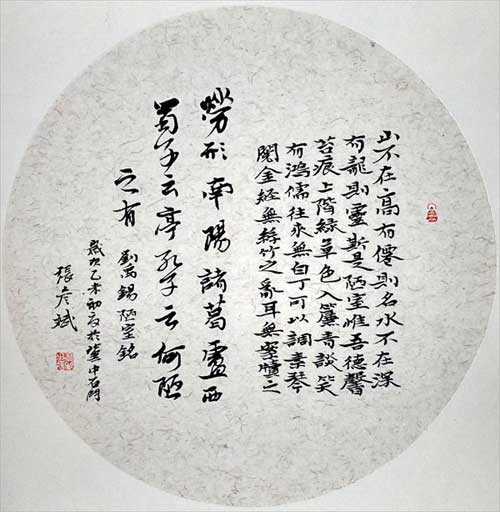 山不在高有僊則名水不在深
有龍則靈斯是陋室惟吾德馨
苔痕上階綠草色入簾青談笑
有鴻儒往來無白丁可以調素琴
閱金經無絲竹之亂耳無案牘之
勞形南陽諸葛盧西
蜀子云亭孔子云何陋
之有
劉禹錫陋室銘
歲次乙未初夏於
張彥斌